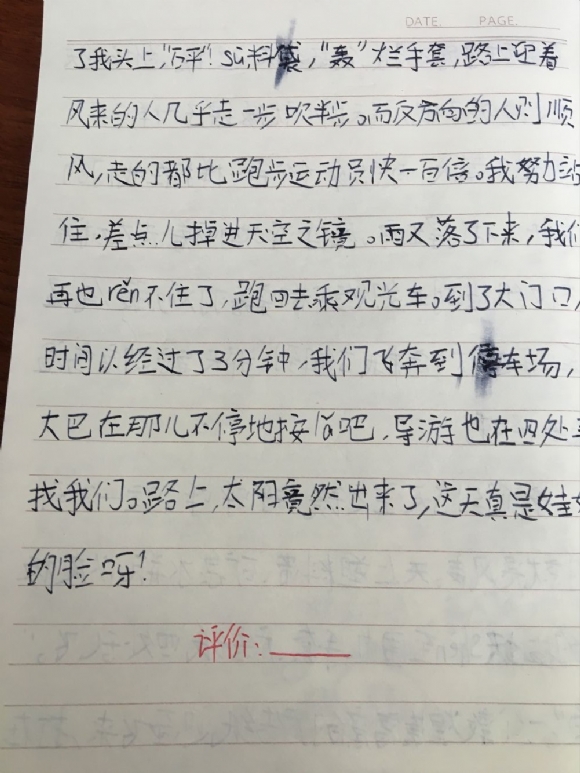 DATE. PAGE.
了我头上,"砰"! sù料袋,"轰"烂手套,路上迎着
风来的人几乎走一步吹半步。而反方向的人则顺
风,走的都比跑步运动员快一百倍。我努力站
住,差点儿掉进天空之镜。雨又落了下来,我们
再也rěn不住了,跑回去乘观光车。到了大门口,
时间以经过了3分钟,我们飞奔到停车场,
大巴在那儿不停地按lǎ吧,导游也在四处
找我们。路上,太阳竟然出来了,这天真是娃娃
的脸呀!
评价: